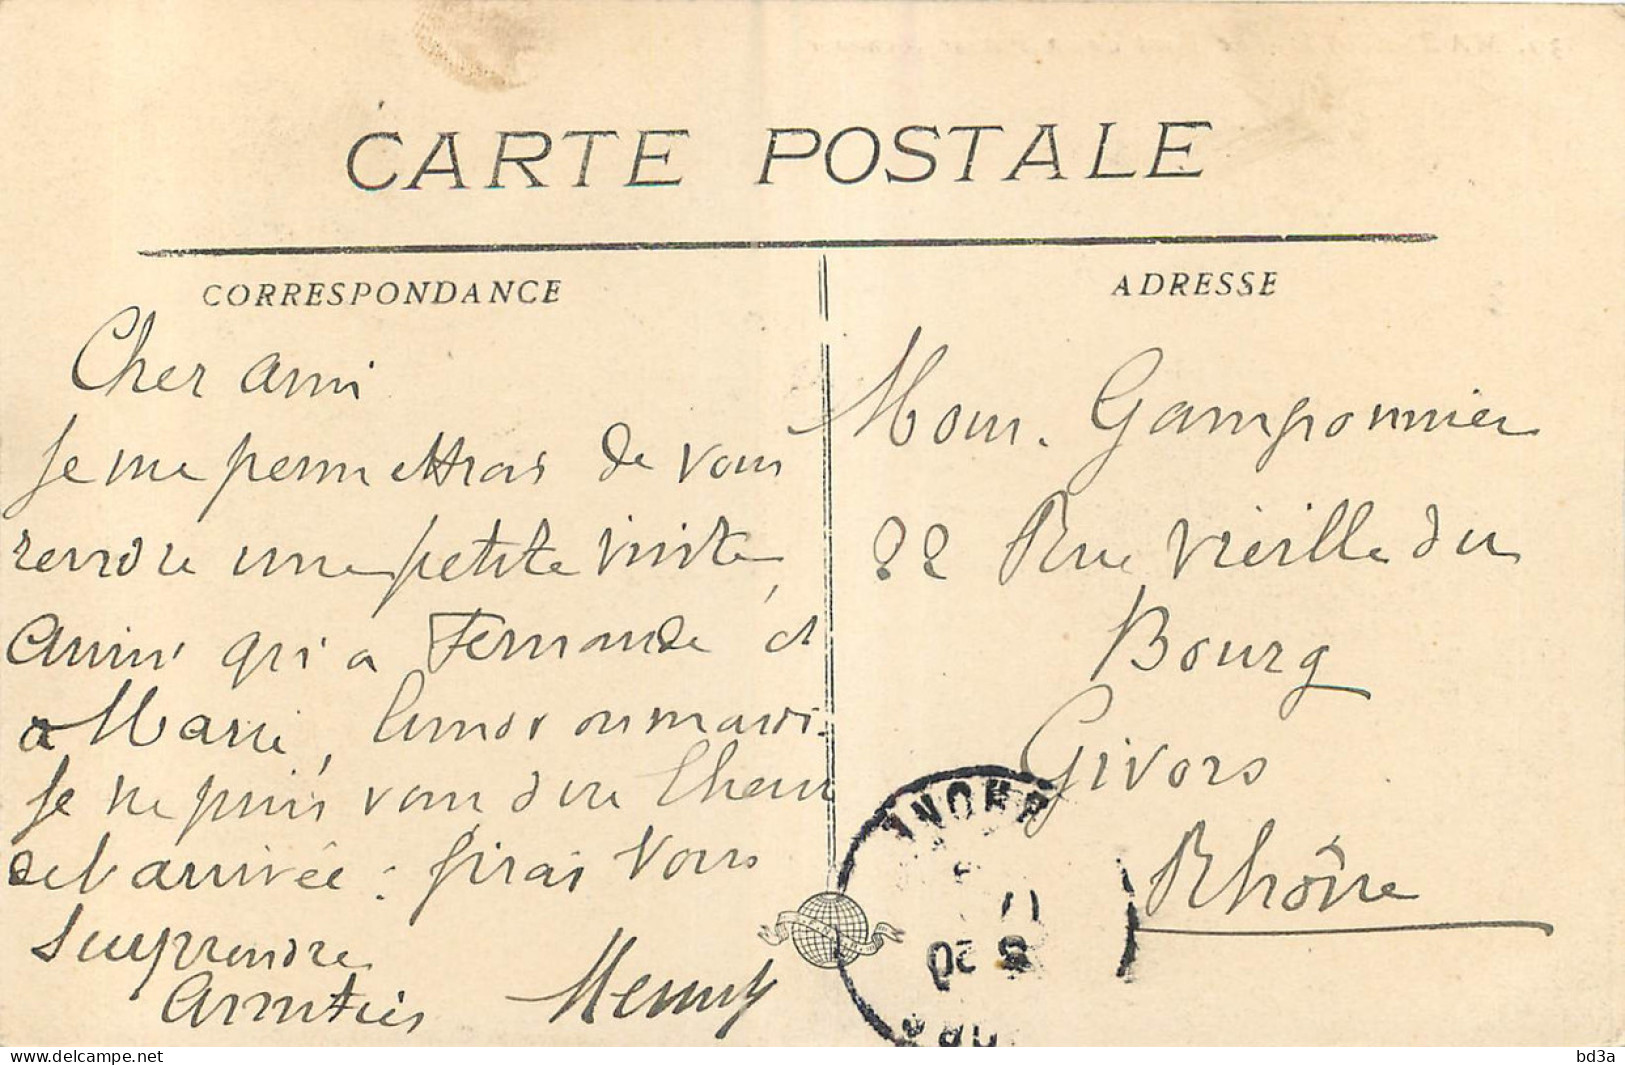 CARTE POSTALE
CORRESPONDANCE
ADRESSE
Cher ami
Je me permettrai de vous
rendre une petite visite
ainsi qu'a Fernande et
a Marie, lundi ou mardi.
Je ne puis vous dire l'heure
de l'arrivée : j'irai vous
surprendre
Amitiés
Mour. Gamponnier
22 Rue Vieille du
Bourg
Givors
Rhône
delcampe.net
bd3a